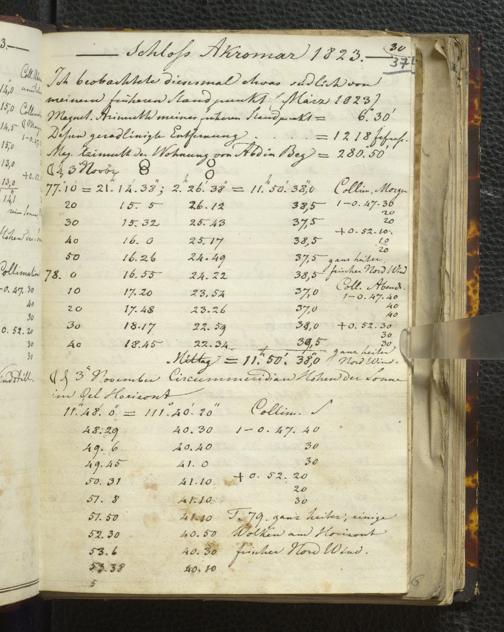 30
Schloss Akromar 1823.
37
Ich beobachtete diesmal etwas südlich von
meinem früheren Standpunkt (März 1823)
Magnet. Azimuth meines früheren Standpunkt = 6.30'
Dessen geradlinigte Entfernung . . . = 1218
Mag. Azimuth der Wohnung von Abdin Beg = 280.50'
3 Novbr
77.10 = 21.14.38"; 2.26.38" = 11.50.38,0 Collim. Morge
20 15.5 26.12 38,5 1-0.47.30
20
30 15.32 25.43 37,5
+0.52.10
40 16.0 25.17 38,5 10
20
50 16.26 24.49 37,5 ganz heiter,
78.0 16.55 24.22 38,5 frischer Nord Wind
10 17.20 23.54 37,0 Coll. Abend.
1-0.47.40
20 17.48 23.26 37,0 40
40
30 18.17 22.59 38,0 +0.52.30
30
40 18.45 22.34 38,5 30
Mittag = 11.50.38,0 ganz heiter
Nord Wind.
3t November Circummeridian Höhen der Sonne
im Oel Horizont
11.48.0" = 111.40.20" Collim.
48.29 40.30 1-0.47.40
49.6 40.40 30
49.45 41.0 30
50.31 41.10 +0.52.20
20
51.8 41.10 30
51.50 41.10 T. 79. ganz heiter, einige
52.30 40.50 Wolken am Horizont
53.6 40.30 frischer Nord Wind.
53.38 40.10
5